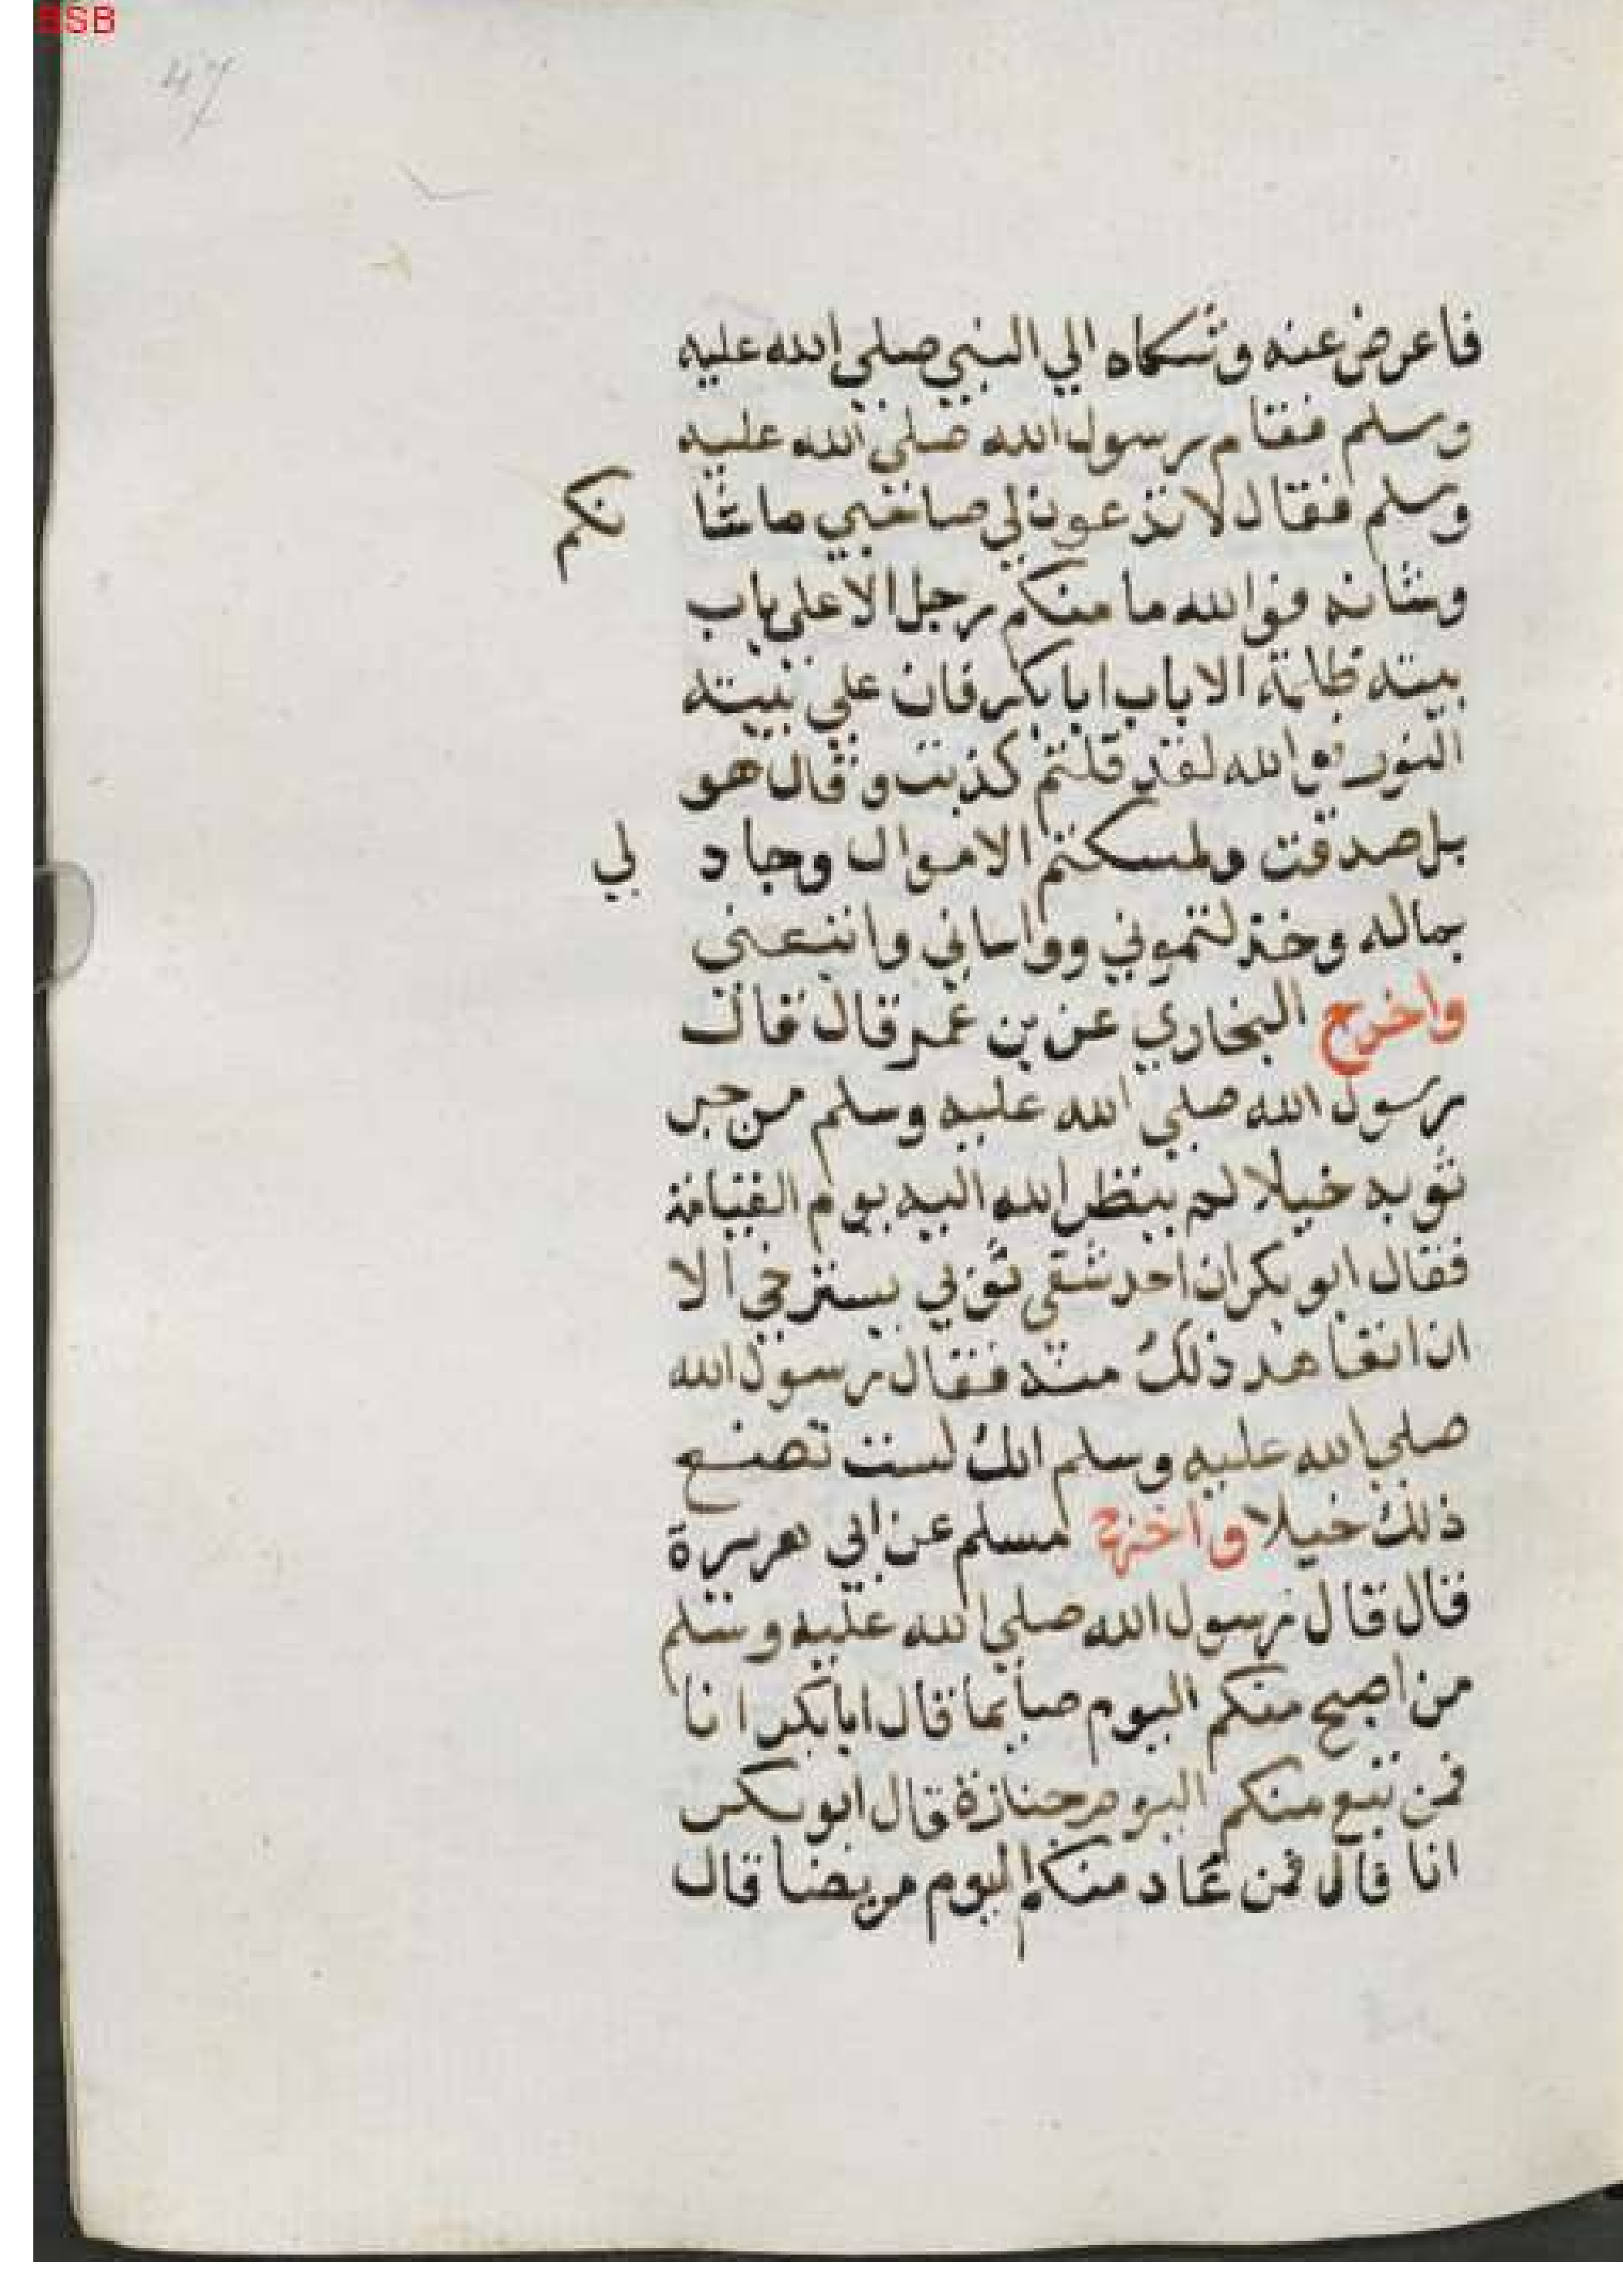 BSB
47
فاعرض عنه وشكاه الي النبي صلي الله عليه
وسلم فقام رسول الله صلي الله عليه
وسلم فقال لا تدعون لي صاحبي ما شا نكم
وشانه فوالله ما منكم رجل الا علي باب
بيته ظلمة الا باب ابا بكر فان علي بيته
النور فوالله لقد قلتم كذبت وقال هو
بل صدقت ولمسكتم الاموال وجاد لي
بماله وخذلتموني وواساني واتبعني
واخرج البخاري عن بن عمر قال قال
رسول الله صلي الله عليه وسلم من جر
ثوبه خيلا لم ينظر الله اليه يوم القيامة
فقال ابو بكر ان احد شقي ثوبي يسترخي الا
ان اتعاهد ذلك منه فقال رسول الله
صلي الله عليه وسلم انك لست تصنع
ذلك خيلا واخرج مسلم عن ابي هريرة
قال قال رسول الله صلي الله عليه وسلم
من اصبح منكم اليوم صايما قال ابا بكر انا
فمن تبع منكم اليوم جنازة قال ابو بكر
انا قال فمن عاد منكم اليوم مريضا قال